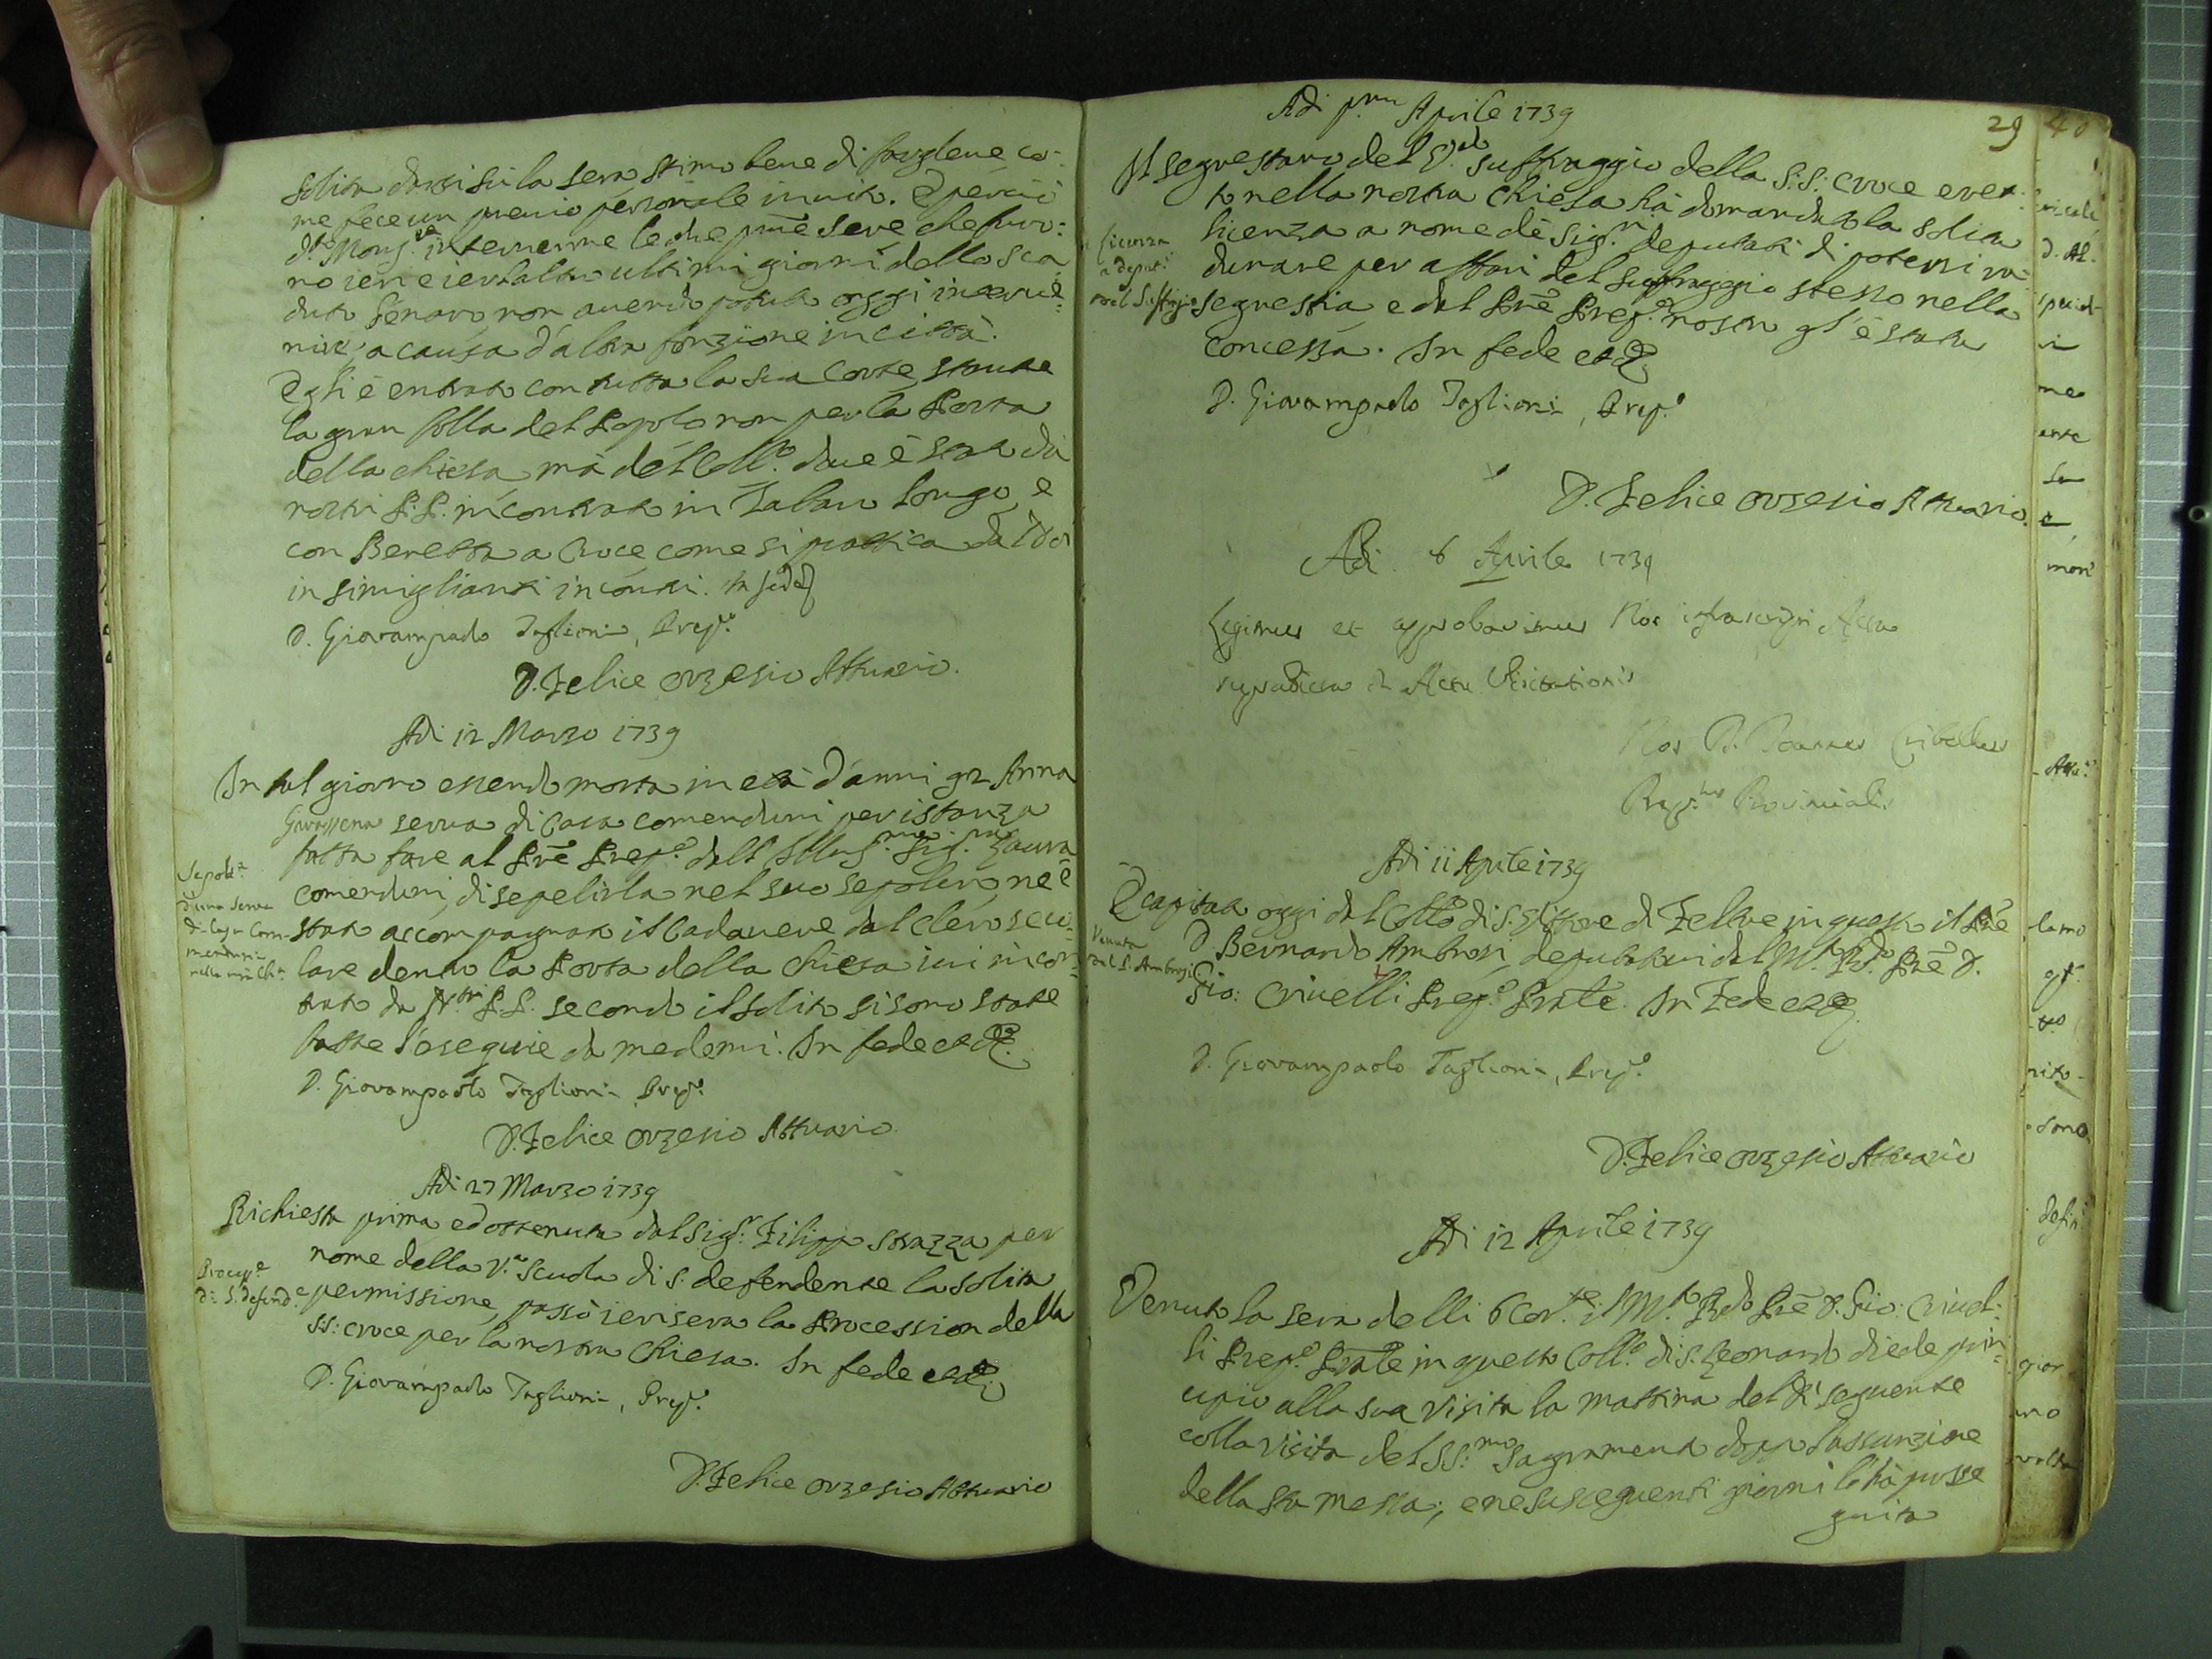 solita darsi sù la sera stimò bene di fargliene co-
me fece un previo personale invito. E perciò
dº. Monsre. intervenne le due pme sere che furo:
no ieri e ier l'altro ultimi giorni dello sca
duto Genaro non avendo potuto oggi interve:
nire, a causa d'altra fonzione in città.
Egli è entrato con tutta la sua Corte, stante
la gran folla del Popolo non per la Porta
della chiesa, mà del Collº. dove è stato da
nostri P.P. incontrato in Talare longo, e
con Beretta a Croce come si prattica da Noi
in simiglianti incontri. In fede
D. Giovampaolo Taglioni, Prepº.
D. Felice Orzesio Attuario.
Adi 12 Marzo 1739
In tal giorno essendo morta in età d'anni 92 Anna
Gavazzena serva di Casa comenduni per istanza
fatta fare al Prē Prepº. dall' Illusma. Sigra. Laura
comenduni, di sepelirla nel suo sepolcro, nè è
stato accompagnato il Cadavere dal clero seco:
lare dentro la Porta della chiesa ivi incon:
trato da Ntri. P.P. secondo il solito si sono state
fatte l'esequie da medemi. In fede etc.
Sepoltª.
d'una serva
di Casa Com-
menduni
nella nrã Chª.
D. Giovampaolo Taglioni Prepº.
D. Felice Orzesio Attuario
Adi 27 Marzo 1739
Richiesta prima ed ottenuta dal Sigr. Filippo Strazza per
nome della V. Scuola di S. defendente la solita
permissione, passò ieri sera la Procession della
SS: croce per la nostra chiesa. In fede etc.
Processe.
di S. Defende.
D. Giovampaolo Taglioni, Prepº.
D. Felice Orzesio Attuario
29
40
Adi pmo Aprile 1739
Il segrestano del Vd. suffraggio della S.S: croce eret:
to nella nostra chiesa hà domandato la solita
licenza a nome dè Sigri. deputati di potersi ra-
dunare per affari del suffraggio stesso nella
segrestia, e dal Prē Prepº. nostro gl' è stata
concessa. In fede etc.
Licenza
a deputi.
del Suffragio
D. Giovampaolo Taglioni, Prepº.
D. Felice Orzesio Attuario.
Adi. 6 Aprile 1739
Legimus et approbavimus Nos infrascripti Acta
supradicta in Actu Visitationis
Nos D. Joannes Cribellus
Preptus Provincialis
Adi 11 Aprile 1739
E capitato oggi dal Collº di S. Vittore di Feltre in questo il Prē
D. Bernardo Ambrosi, deputatovi dal M. Rdo. Prē D.
Gio: Crivelli Prepº. Prāle. In Fede etc.
Venuta
del P. Ambrosi
D. Giovampaolo Taglioni, Prepº.
D. Felice Orzesio Attuario
Adi 12 Aprile 1739
Venuto la sera delli 6 Corte. il M. Rdo Prē D. Gio: Crivel:
li Prepº. Prāle in questo Collº. di S. Leonardo diede prin:
cipio alla sua Visita la mattina del dì seguente
colla visita del SS:mo Sagramento doppo l'assunzione
della sta messa; e ne susseguenti giorni l'hà prosse
guita
D. Al.
me
ente
mori
lamo
nito-
sono
defin
gior
volta